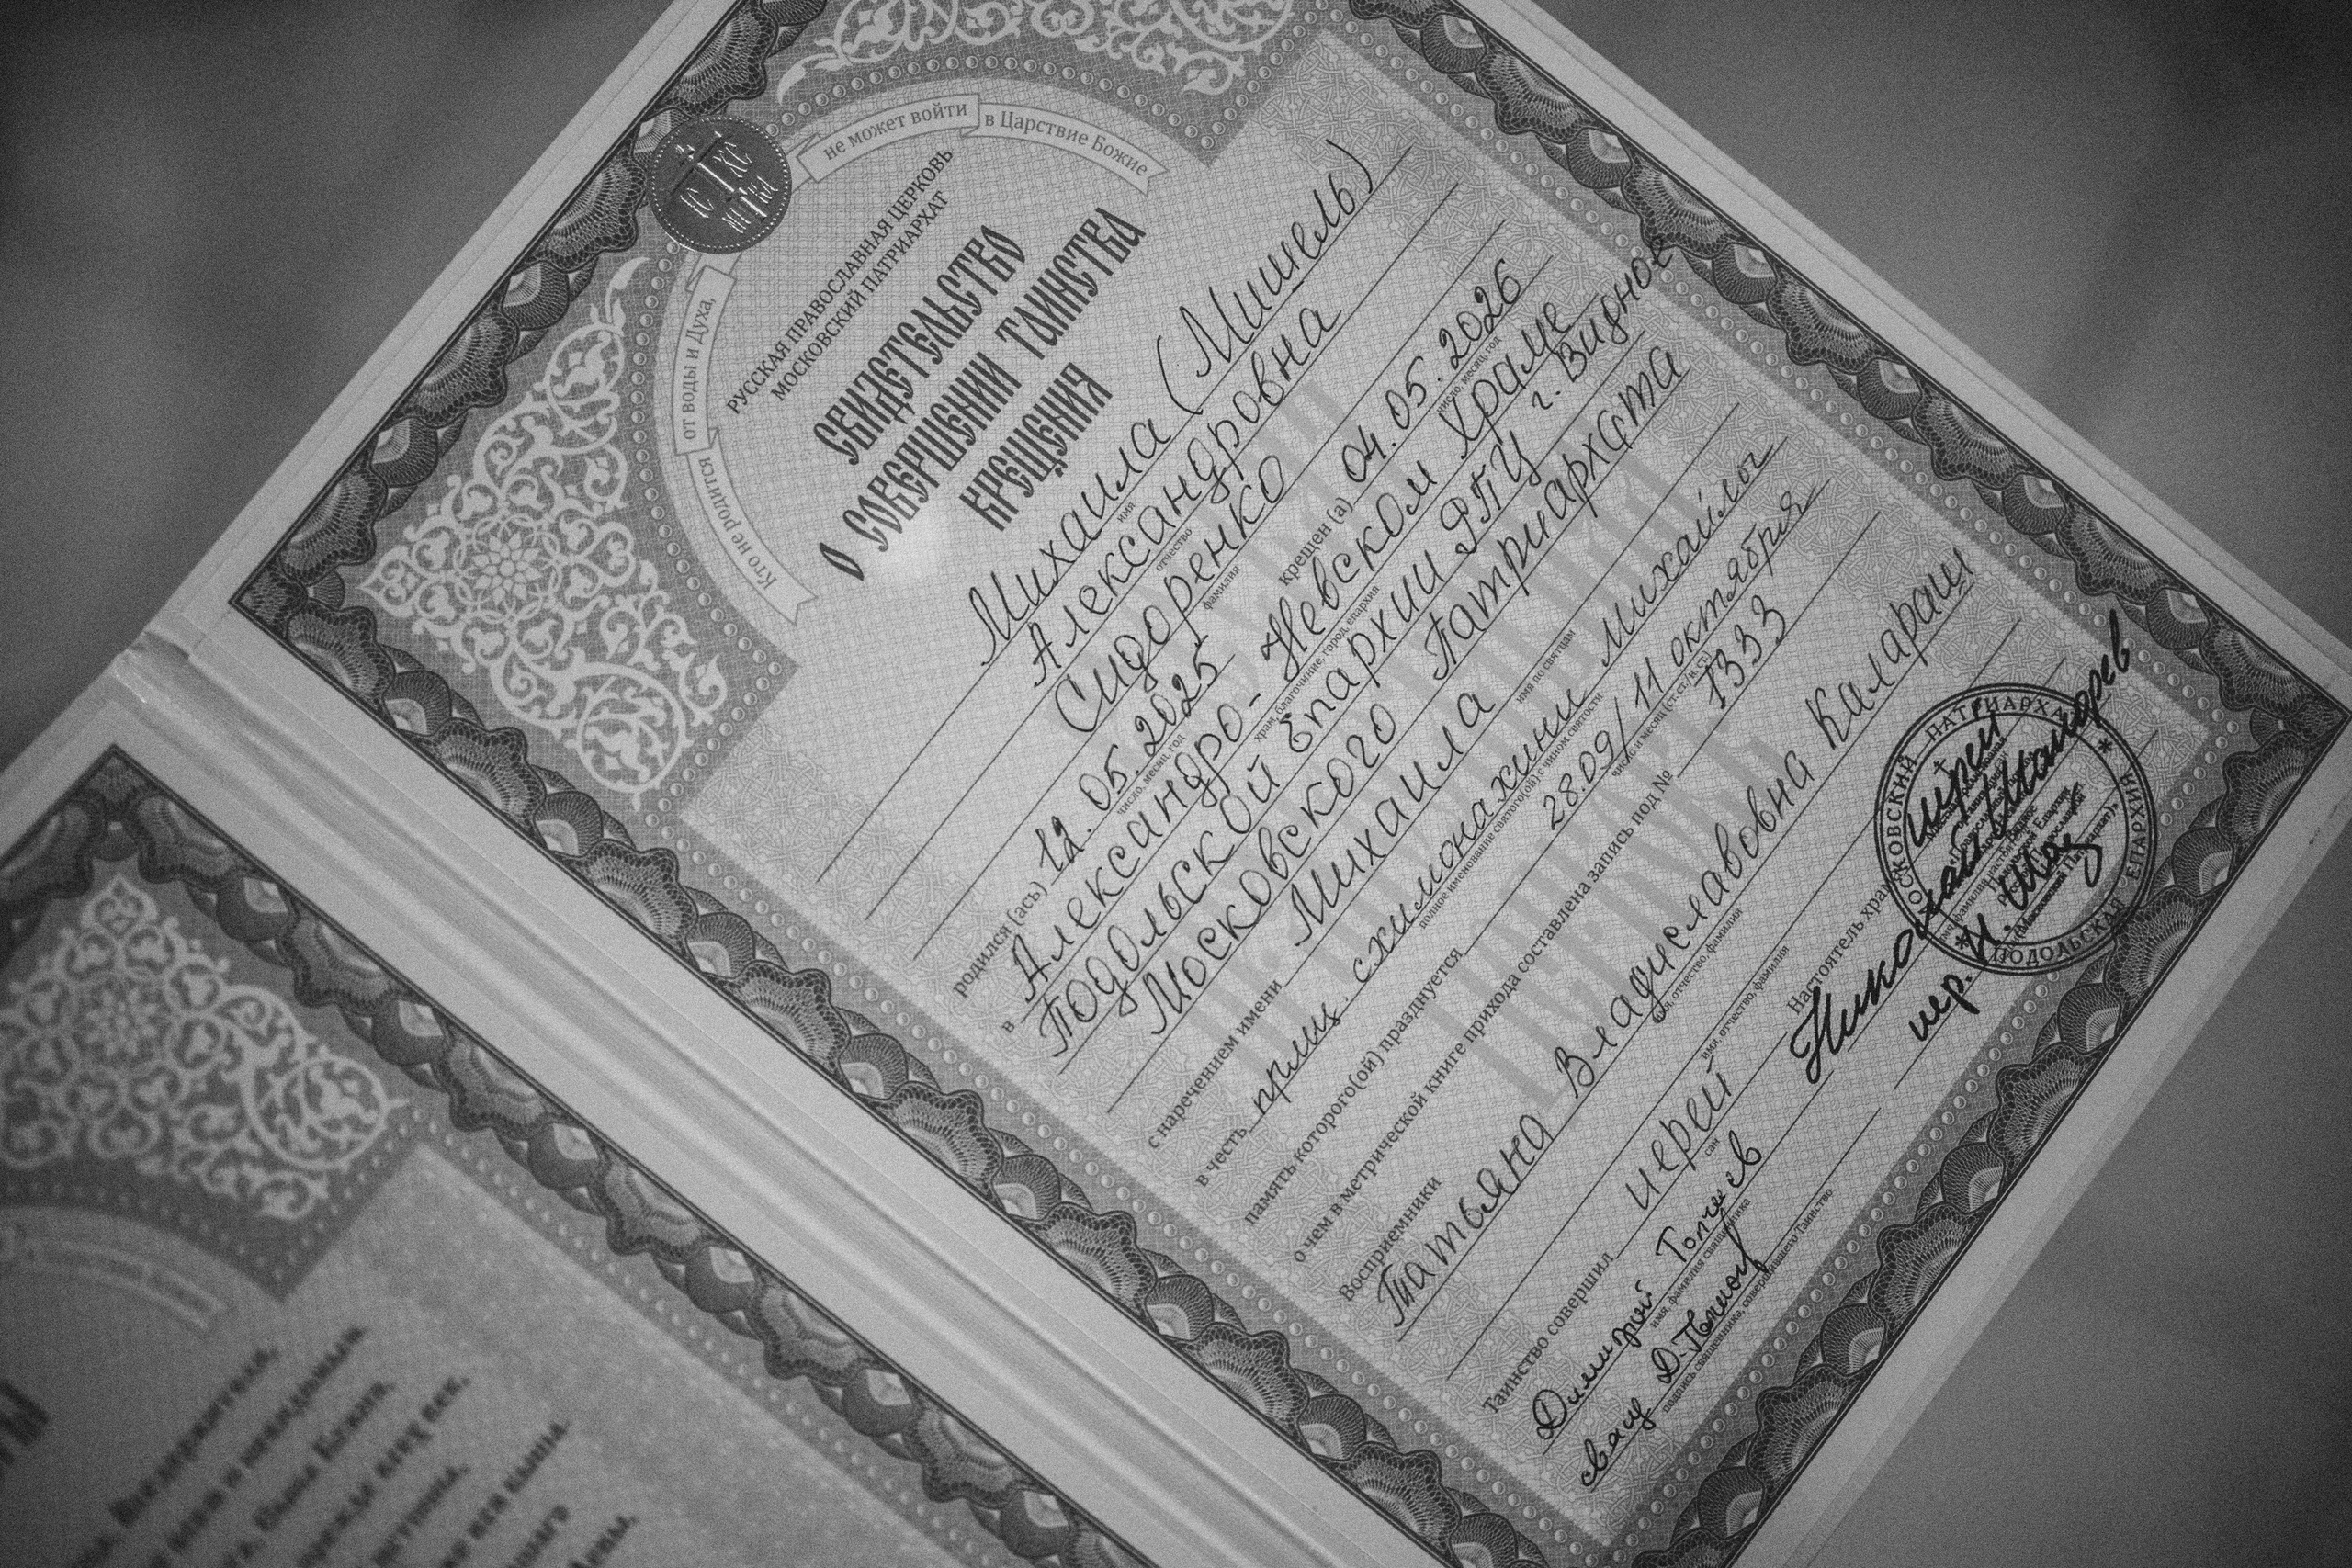 Кто не родится от воды и Духа, не может войти в Царствие Божие
ІС ХС
НИ КА
РУССКАЯ ПРАВОСЛАВНАЯ ЦЕРКОВЬ
МОСКОВСКИЙ ПАТРИАРХАТ
СВИДЕТЕЛЬСТВО
О СОВЕРШЕНИИ ТАИНСТВА
КРЕЩЕНИЯ
Михаила (Мишель)
имя
Александровна
отчество
Сидоренко
фамилия
родился (ась) 12.05.2025 крещен (а) 04.05.2026
число, месяц, год число, месяц, год
в Александро-Невском Храме
храм, благочиние, город, епархия
Подольской Епархии РПЦ г. Видное
Московского Патриархата
с наречением имени Михаила
имя по святцам
в честь прмц. схимонахини Михаилы
полное именование святого(ой) с чином святости
память которого(ой) празднуется 28.09/11 октября
число и месяц (ст.ст./н.ст.)
о чем в метрической книге прихода составлена запись под № 1333
Восприемники
Татьяна Владиславовна Калараш
имя, отчество, фамилия
имя, отчество, фамилия
Таинство совершил иерей
сан
Димитрий
имя, фамилия священника
свящ
подпись священника, совершившего Таинство
Настоятель храма
иерей
Николай
иер. Н.
МОСКОВСКИЙ ПАТРИАРХАТ
ПОДОЛЬСКАЯ ЕПАРХИЯ